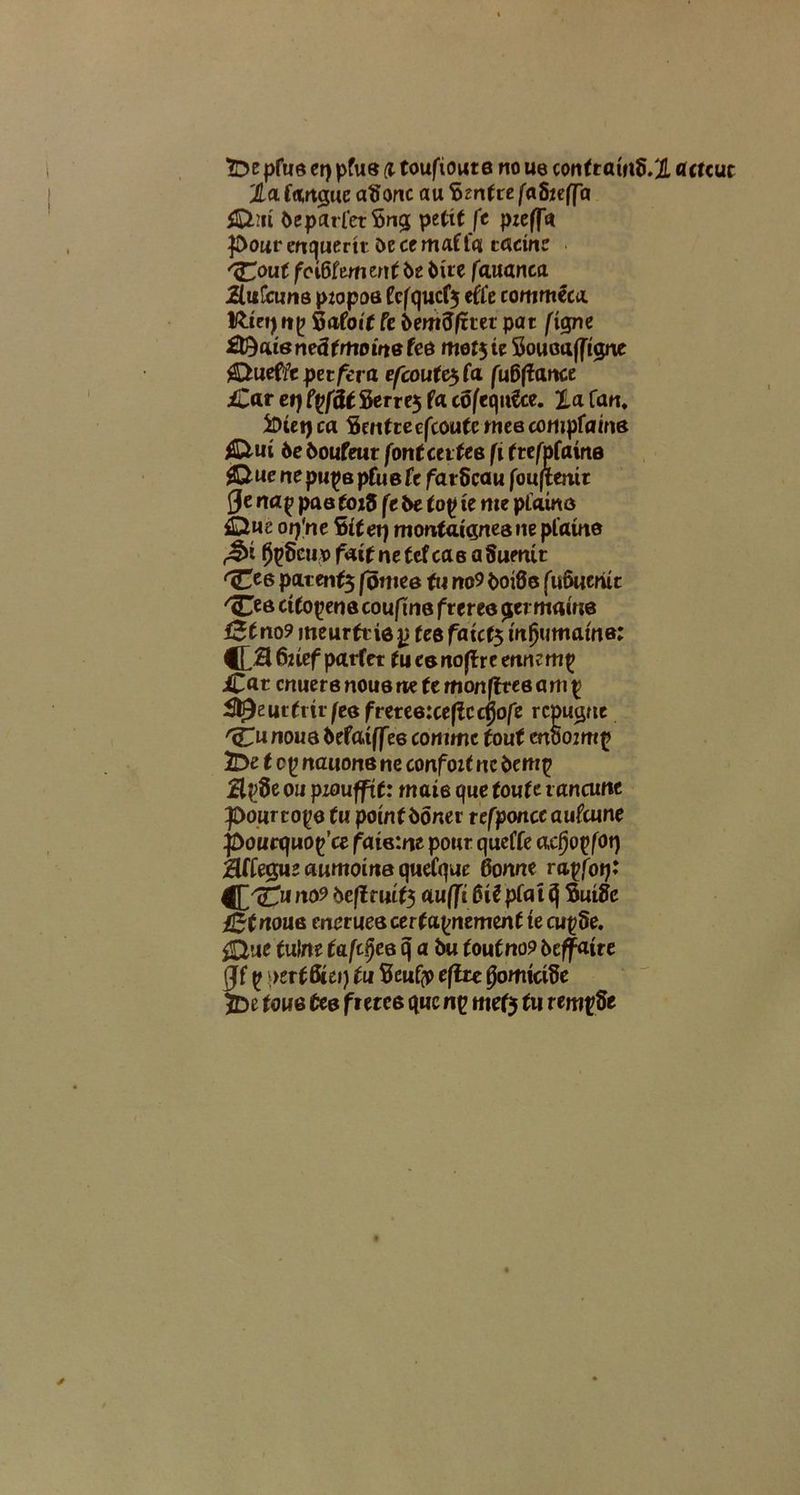 De plus en plus & tousiours nous contrainds. L acteur
La langue adonc au ventre sadressa
Qui de parler vng petit se pressa
Pour enquerir de ce mal la racine
Tout foiblement de dire sauanca
Aulcuns propos lesquelz elle commēca
Rien ny valoit le demōstrer par signe
Mais neātmoins les motz ie vous assigne
Quelle persera escoutez la substance
Car en lysāt verrez la cōsequēce. La lan.
Dien ca ventre escoute mes complains
Qui de douleur sont certes si trespsains
Que ne puys plus le fardeau soustenir
Je nay pas tord se de toy ie me plains
Que on ne vit en montaignes ne plains
Si hydeux fait ne tel cas aduenir
Tes parentz sōmes tu no⁹ doibs subuenir
Tes citoyens cousins freres germains
Et no⁹ meurtris p tes faictz inhumains:
¶ A brief parler tu es nostre ennemy
Car enuers nous ne te monstres amy
Meurtrir ses freres: cest chose repugne
Tu nous delaisses comme tout endormy
De toy nauons ne confort ne demy
Ayde ou prouffit: mais que toute rancune
Pour toys tu point dōner responce aulcune
Pourquoy ce fais: ne pour quelle achoyson
Allegue aumoins quelque bonne rayson:
¶ Tu no⁹ destruitz aussi biē plaī q̄ vuide
Et nous enerues certaynement ie cuyde.
Que tu ne tasches q̄ a du tout no⁹ deffaire
Il y pert bien tu veulx estre homicide
De tous tes freres que ny metz tu remyde